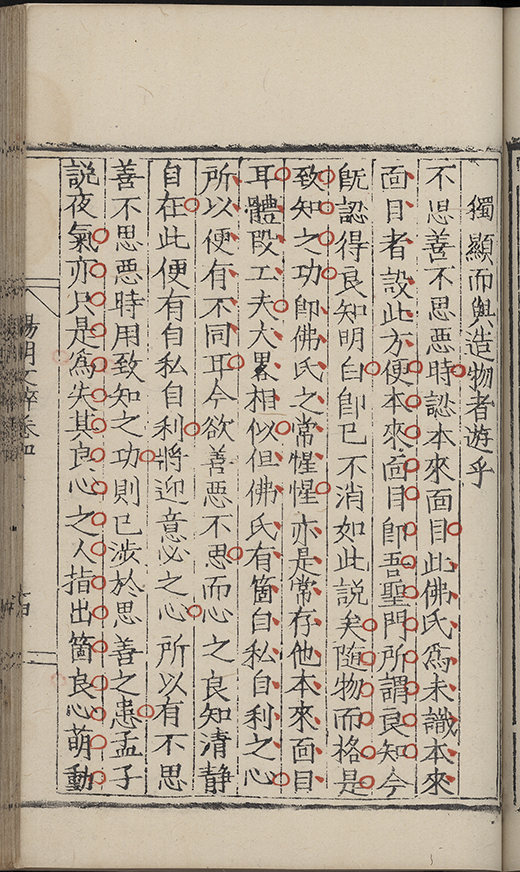 獨顯而與造物者遊乎
不思善不思惡時認本來面目此佛氏爲未識本來
面目者設此方便本來面目卽吾聖門所謂良知今
旣認得良知明白卽已不消如此説矣隨物而格是
致知之功卽佛氏之常惺惺亦是常存他本來面目
耳體段工夫大畧相似但佛氏有箇自私自利之心
所以便有不同耳今欲善惡不思而心之良知清静
自在此便有自私自利將迎意必之心所以有不思
善不思惡時用致知之功則已涉於思善之患孟子
説夜氣亦只是爲失其良心之人指出箇良心萌動
陽明文粹卷四